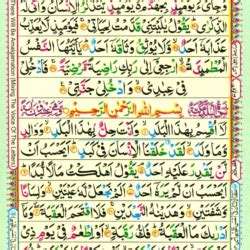 وَجِايْٓءَ يَوْمَئِذٍۭ بِجَهَنَّمَ يَوْمَئِذٍ يَّتَذَكَّرُ الْاِنْسَانُ وَاَنّٰى لَهُ
الذِّكْرٰى يَقُوْلُ يٰلَيْتَنِيْ قَدَّمْتُ لِحَيَاتِيْ فَيَوْمَئِذٍ لَّا يُعَذِّبُ
عَذَابَهٗٓ اَحَدٌ وَّلَا يُوْثِقُ وَثَاقَهٗٓ اَحَدٌ يٰٓاَيَّتُهَا النَّفْسُ
الْمُطْمَئِنَّةُ ارْجِعِيْٓ اِلٰى رَبِّكِ رَاضِيَةً مَّرْضِيَّةً فَادْخُلِيْ
فِيْ عِبٰدِيْ وَادْخُلِيْ جَنَّتِيْ
بِسْمِ اللّٰهِ الرَّحْمٰنِ الرَّحِيْمِ
لَآ اُقْسِمُ بِهٰذَا الْبَلَدِ وَاَنْتَ حِلٌّۢ بِهٰذَا الْبَلَدِ وَوَالِدٍ
وَّمَا وَلَدَ لَقَدْ خَلَقْنَا الْاِنْسَانَ فِيْ كَبَدٍ اَيَحْسَبُ اَنْ
لَّنْ يَّقْدِرَ عَلَيْهِ اَحَدٌ يَقُوْلُ اَهْلَكْتُ مَالًا لُّبَدًا
اَيَحْسَبُ اَنْ لَّمْ يَرَهٗٓ اَحَدٌ اَلَمْ نَجْعَلْ لَّهٗ عَيْنَيْنِ وَلِسَانًا
وَّشَفَتَيْنِ وَهَدَيْنٰهُ النَّجْدَيْنِ فَلَا اقْتَحَمَ الْعَقَبَةَ وَمَآ
اَدْرٰىكَ مَا الْعَقَبَةُ فَكُّ رَقَبَةٍ اَوْ اِطْعَامٌ فِيْ يَوْمٍ ذِيْ